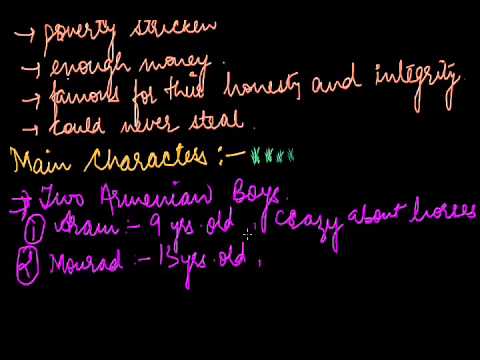 → poverty stricken
→ enough money.
→ famous for their honesty and integrity.
→ could never steal.
Main Characters :-
→ Two Armenian Boys.
① Aram :- 9 yrs. old, crazy about horses
② Mourad :- 13 yrs. old,